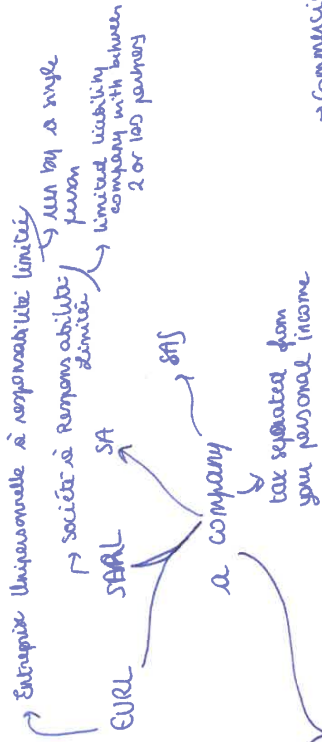 Entreprise Unipersonnelle à responsabilité limitée
run by a single
person
Société à Responsabilité
Limitée
limited liability
company with between
2 or 100 partners
EURL
SARL
SA
SAS
a company
tax separated from
your personal income